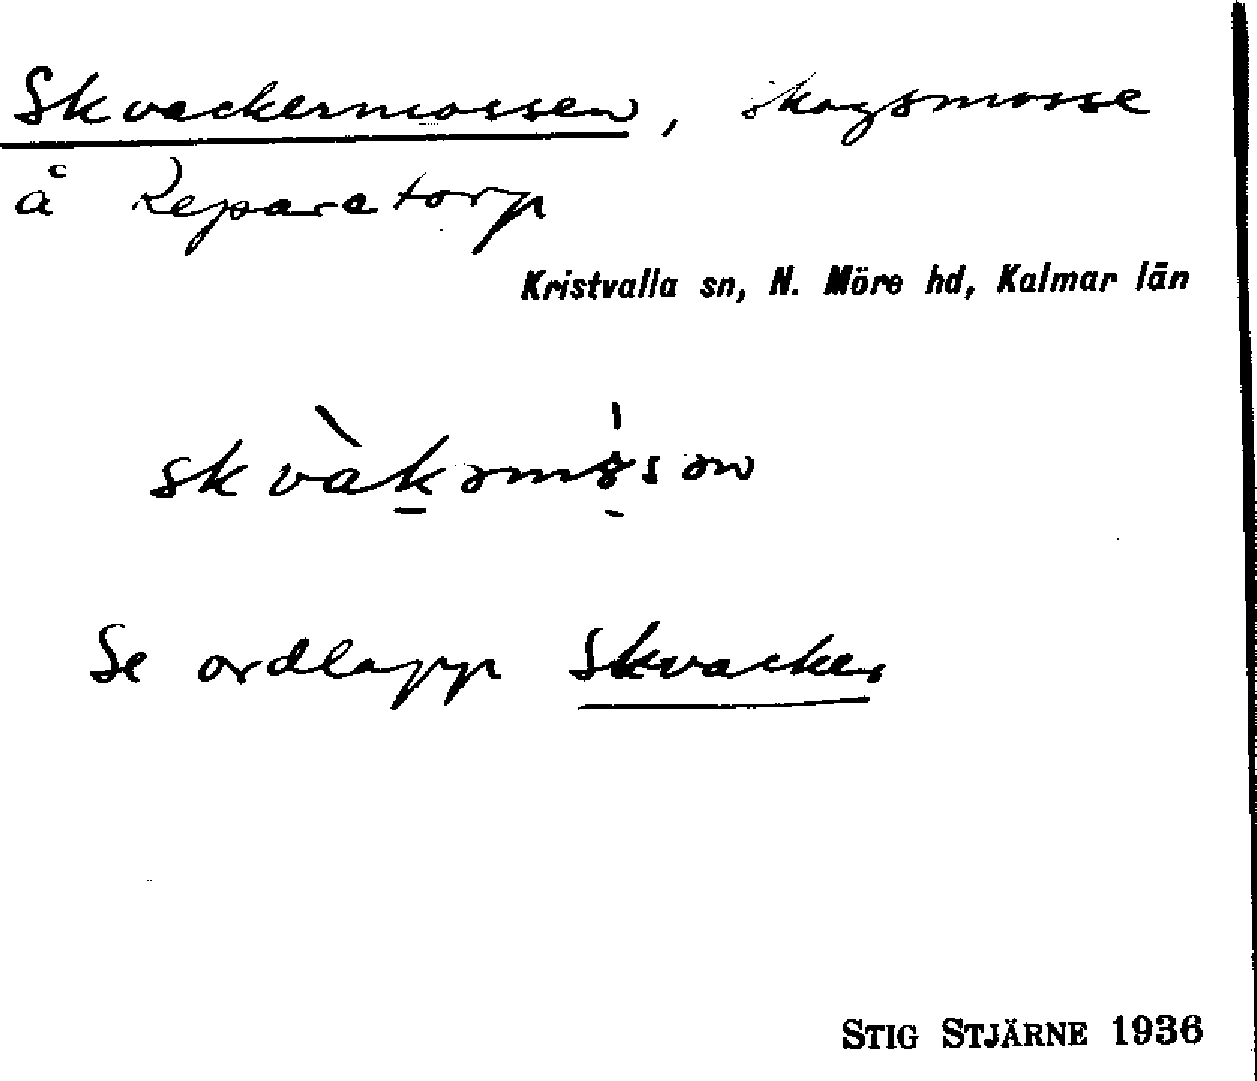 Skvackermossen, skogsmosse
å Reparetorp
Kristvalla sn, N. Möre hd, Kalmar län
Se ordlapp Skvacker
STIG STJÄRNE 1936